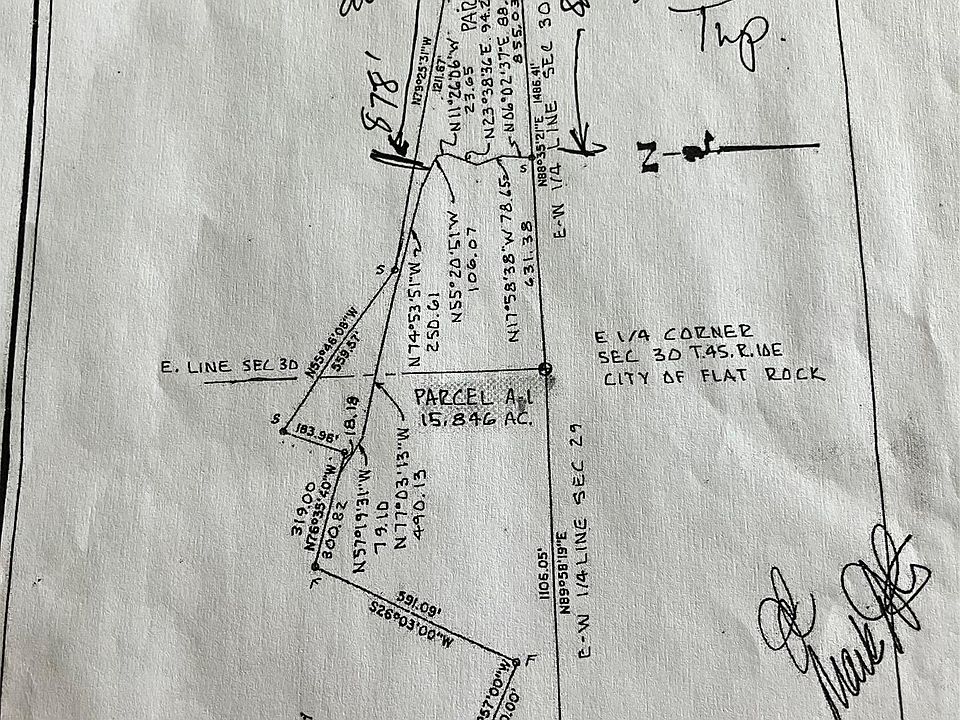 Twp.
878'
N79°25'31"W
1211.67'
N11°26'06"W
23.65
N23°38'36"E 94.2
N06°02'37"E 88.
855.03
N88°35'21"E 1486.41'
E-W 1/4 LINE SEC 30
N
S
S
N74°53'51"W
250.61
N55°20'51"W
106.07
N17°58'38"W 78.65
631.38
N55°46'08"W
559.57'
E. LINE SEC 30
E 1/4 CORNER
SEC 30 T.4S.R.10E
CITY OF FLAT ROCK
PARCEL A-1
15.846 AC.
S
183.96'
18.18
319.00
N76°35'40"W
800.82
N57°19'31"W
79.10
N77°03'13"W
490.13
591.09'
S26°03'00"W
1106.05'
N89°58'19"E
E-W 1/4 LINE SEC 29
F
57'00"W
0.00'
Mark